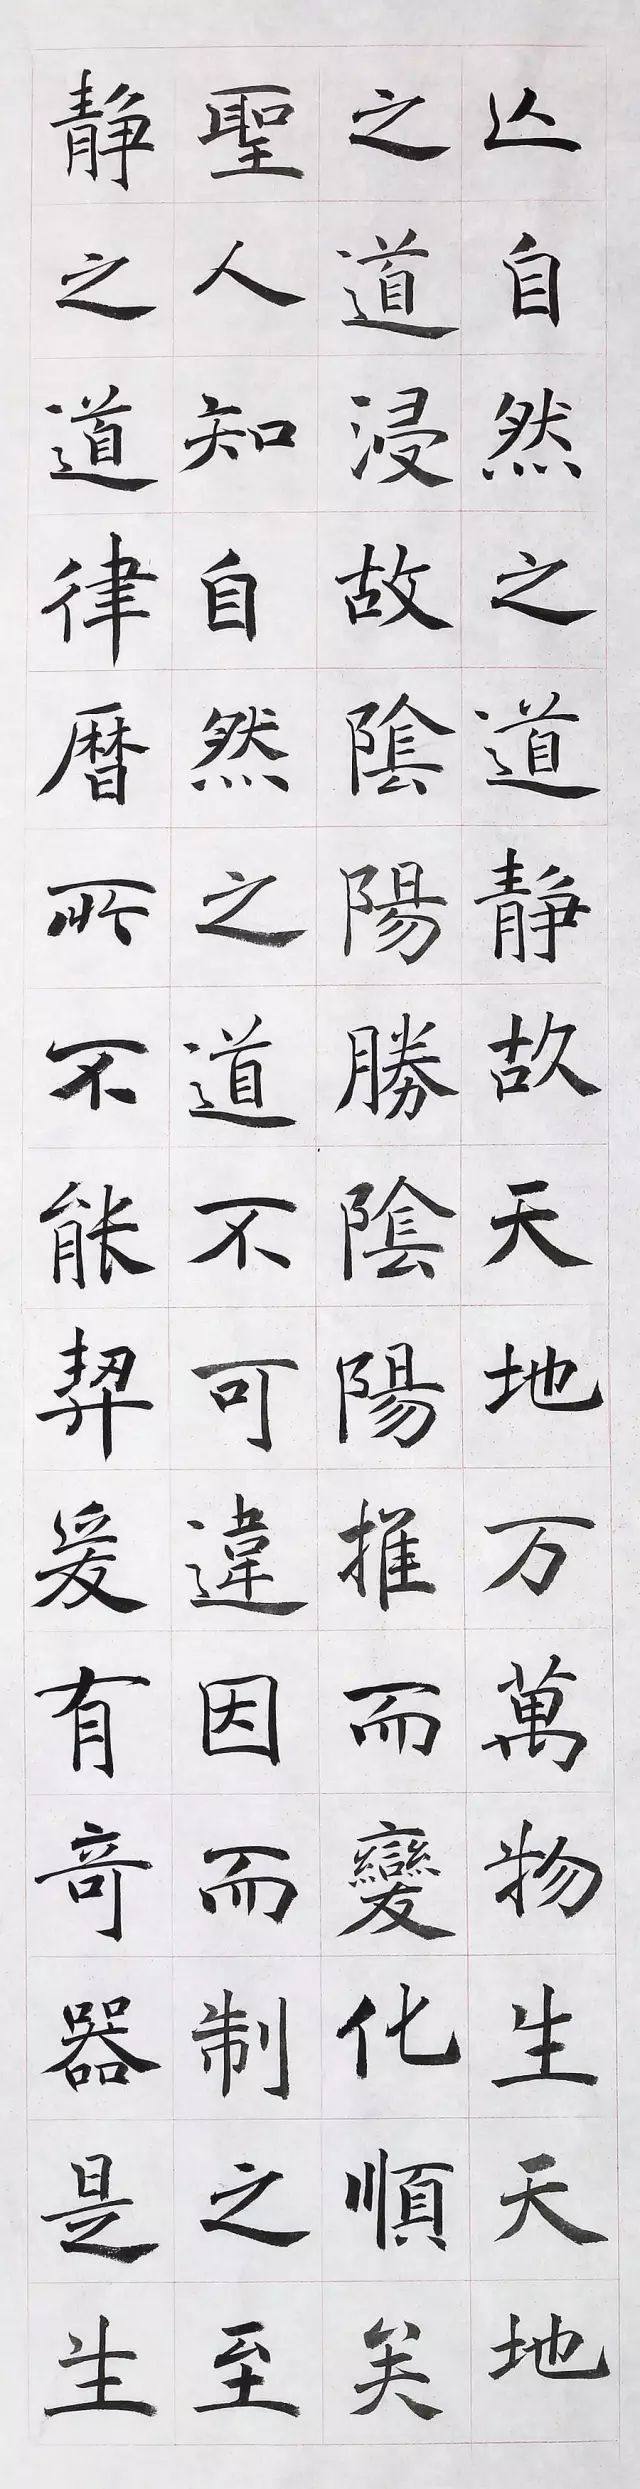 亾自然之道静故天地万萬物生天地
之道浸故陰陽勝陰陽推而變化順矣
聖人知自然之道不可違因而制之至
静之道律暦所不能契爰有奇器是生